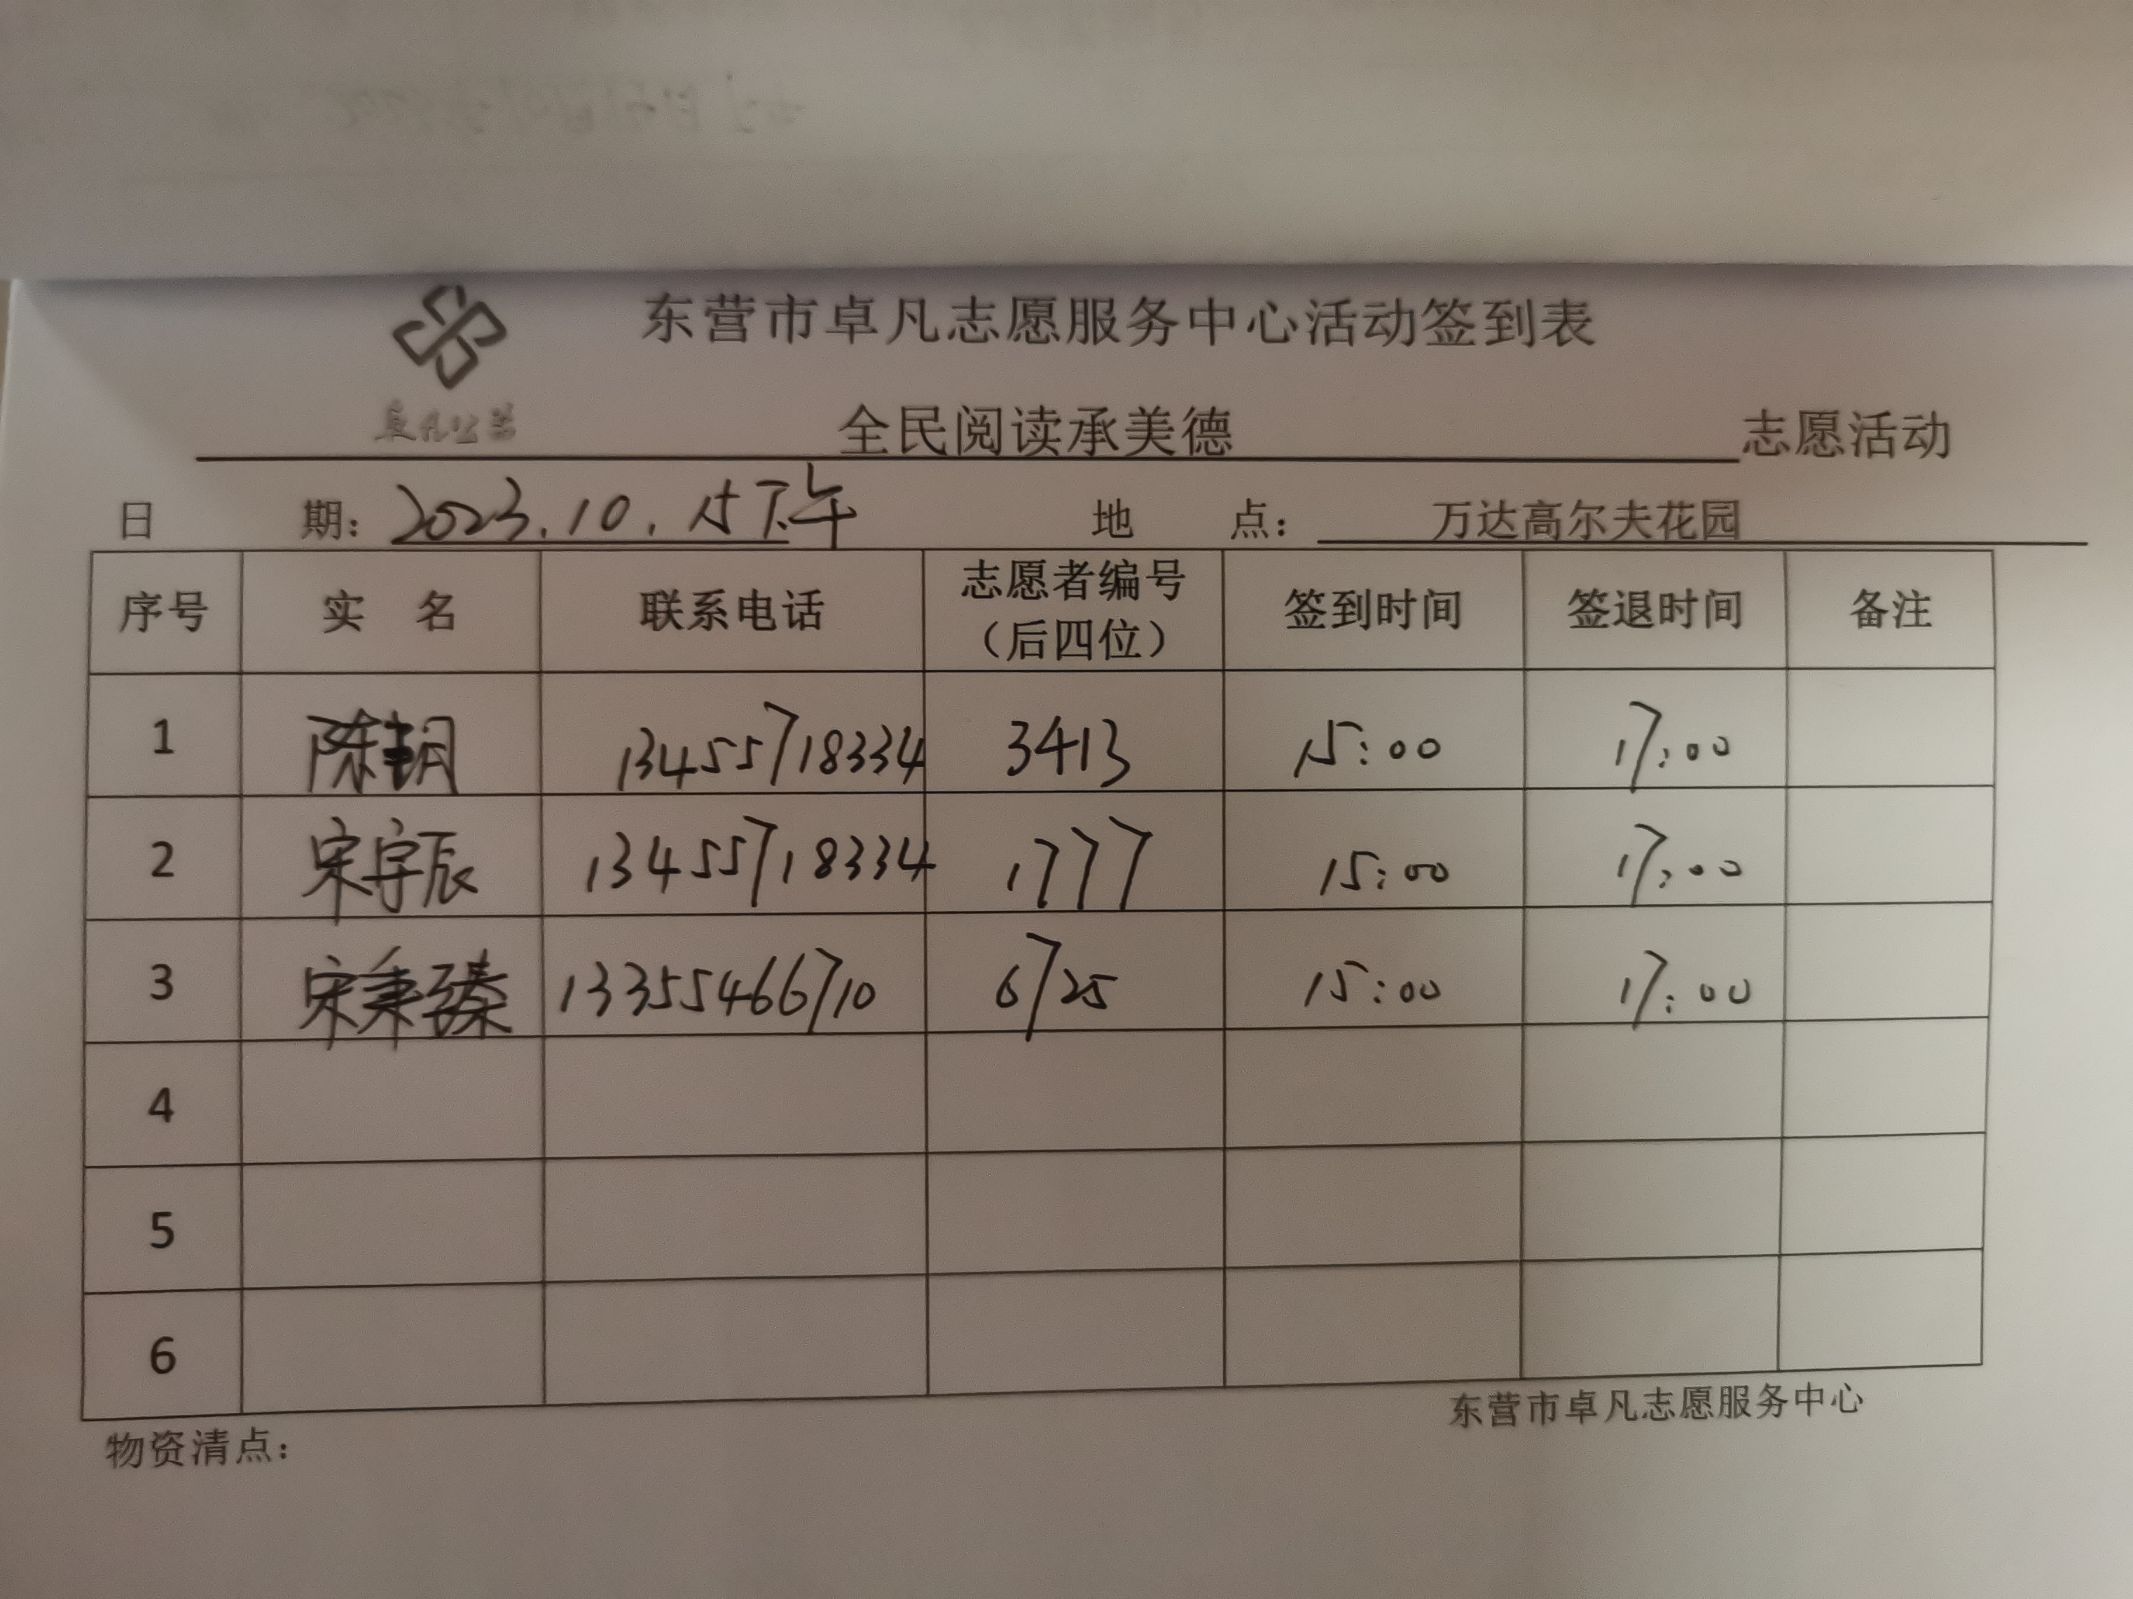 东营市卓凡志愿服务中心活动签到表
卓凡公益
全民阅读承美德 志愿活动
日 期: 2023.10.15下午 地 点: 万达高尔夫花园
序号 实 名 联系电话 志愿者编号(后四位) 签到时间 签退时间 备注
1 陈玥 13455718334 3413 15:00 17:00
2 宋宇辰 13455718334 1777 15:00 17:00
3 宋秉臻 13355466710 6725 15:00 17:00
4
5
6
东营市卓凡志愿服务中心
物资清点: